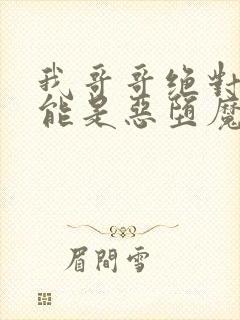 我哥哥绝對
能是惡墮魔
眉間雪